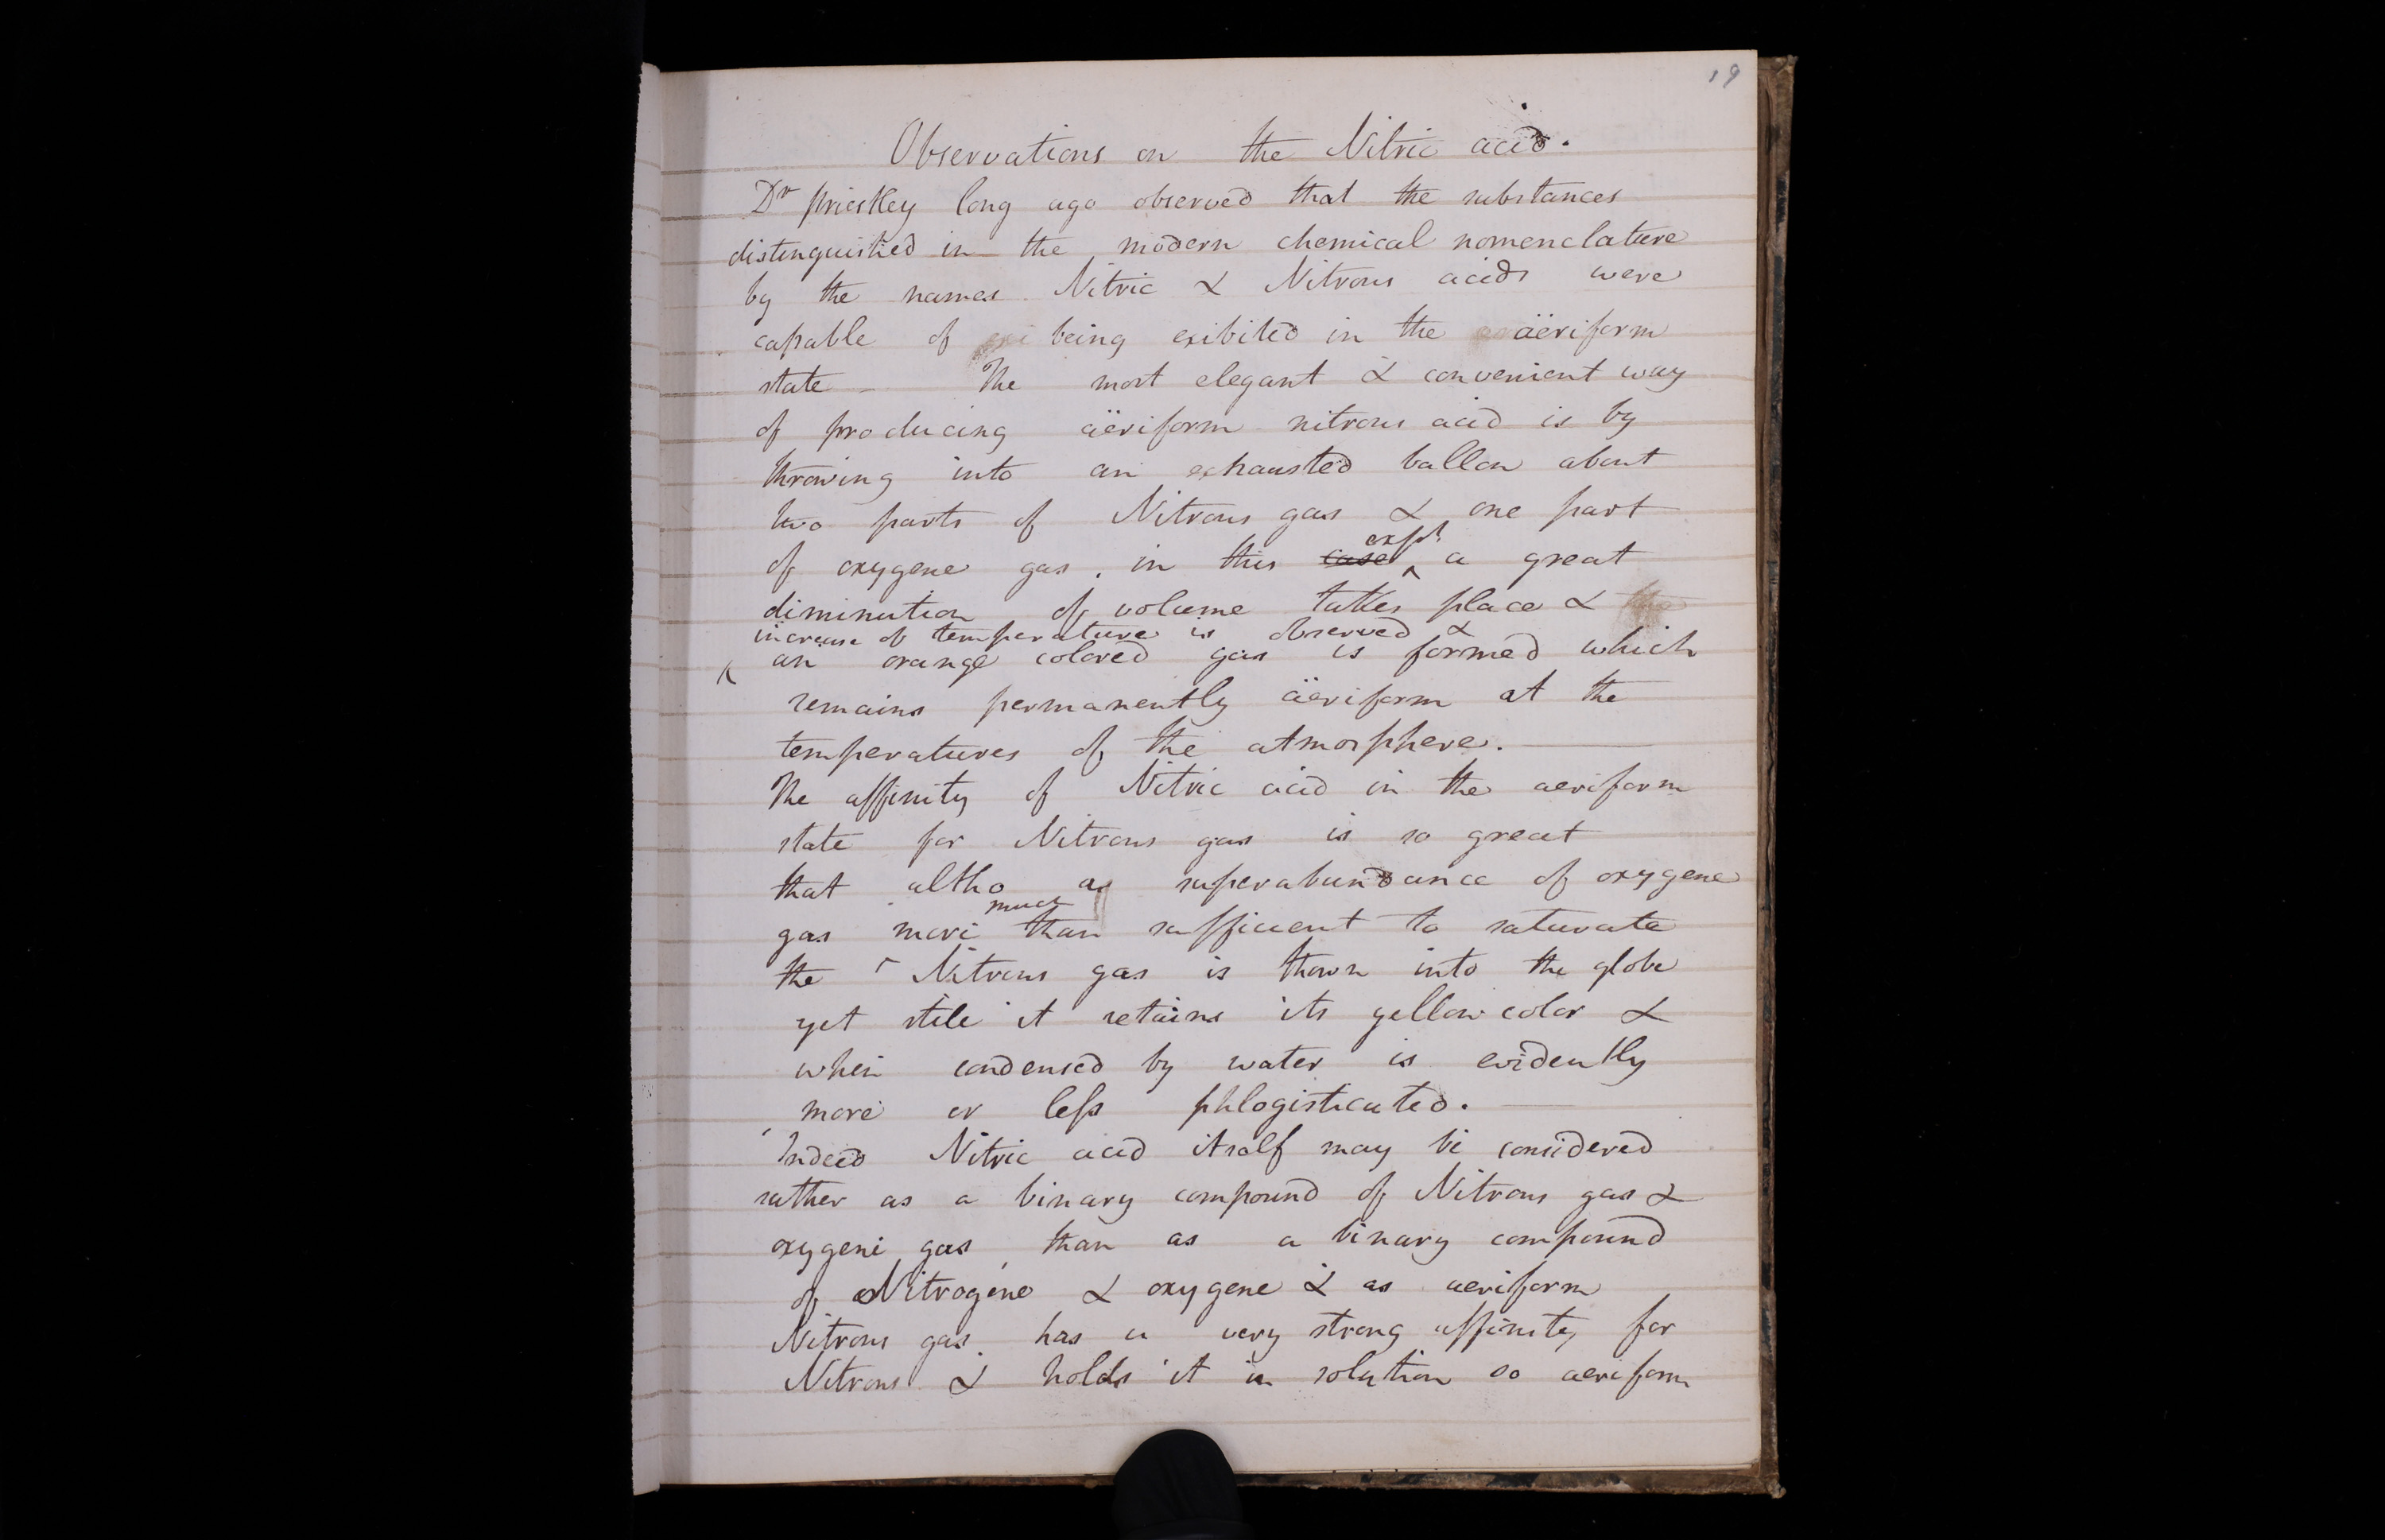 19
Observations on the Nitric acid.
Dr Priestley long ago observed that the substances
distinguished in the modern chemical nomenclature
by the names Nitric & Nitrous acids were
capable of exi being exibited in the aëriform
state – The most elegant & convenient way
of producing aëriform nitrous acid is by
throwing into an exhausted ballon about
two parts of Nitrous gas & one part
expt
of oxygene gas. in this case ^ a great
diminution of volume takes place & the
increase of temperature is observed &
^ an orange colored gas is formed which
remains permanently aëriform at the
temperatures of the atmosphere.
The affinity of Nitric acid in the aeriform
state for Nitrous gas is so great
that altho a superabundance of oxygene
much
gas more than sufficient to saturate
the ^ Nitrous gas is thown into the globe
yet stile it retains its yellow color &
when condensed by water is evidently
more or less phlogisticated.
Indeed Nitric acid itself may be considered
rather as a binary compound of Nitrous gas &
oxygene gas, than as a binary compound
of Nitrogene & oxygene & as aeriform
Nitrous gas. has a very strong affinity for
Nitrous & holds it in solution so aeriform